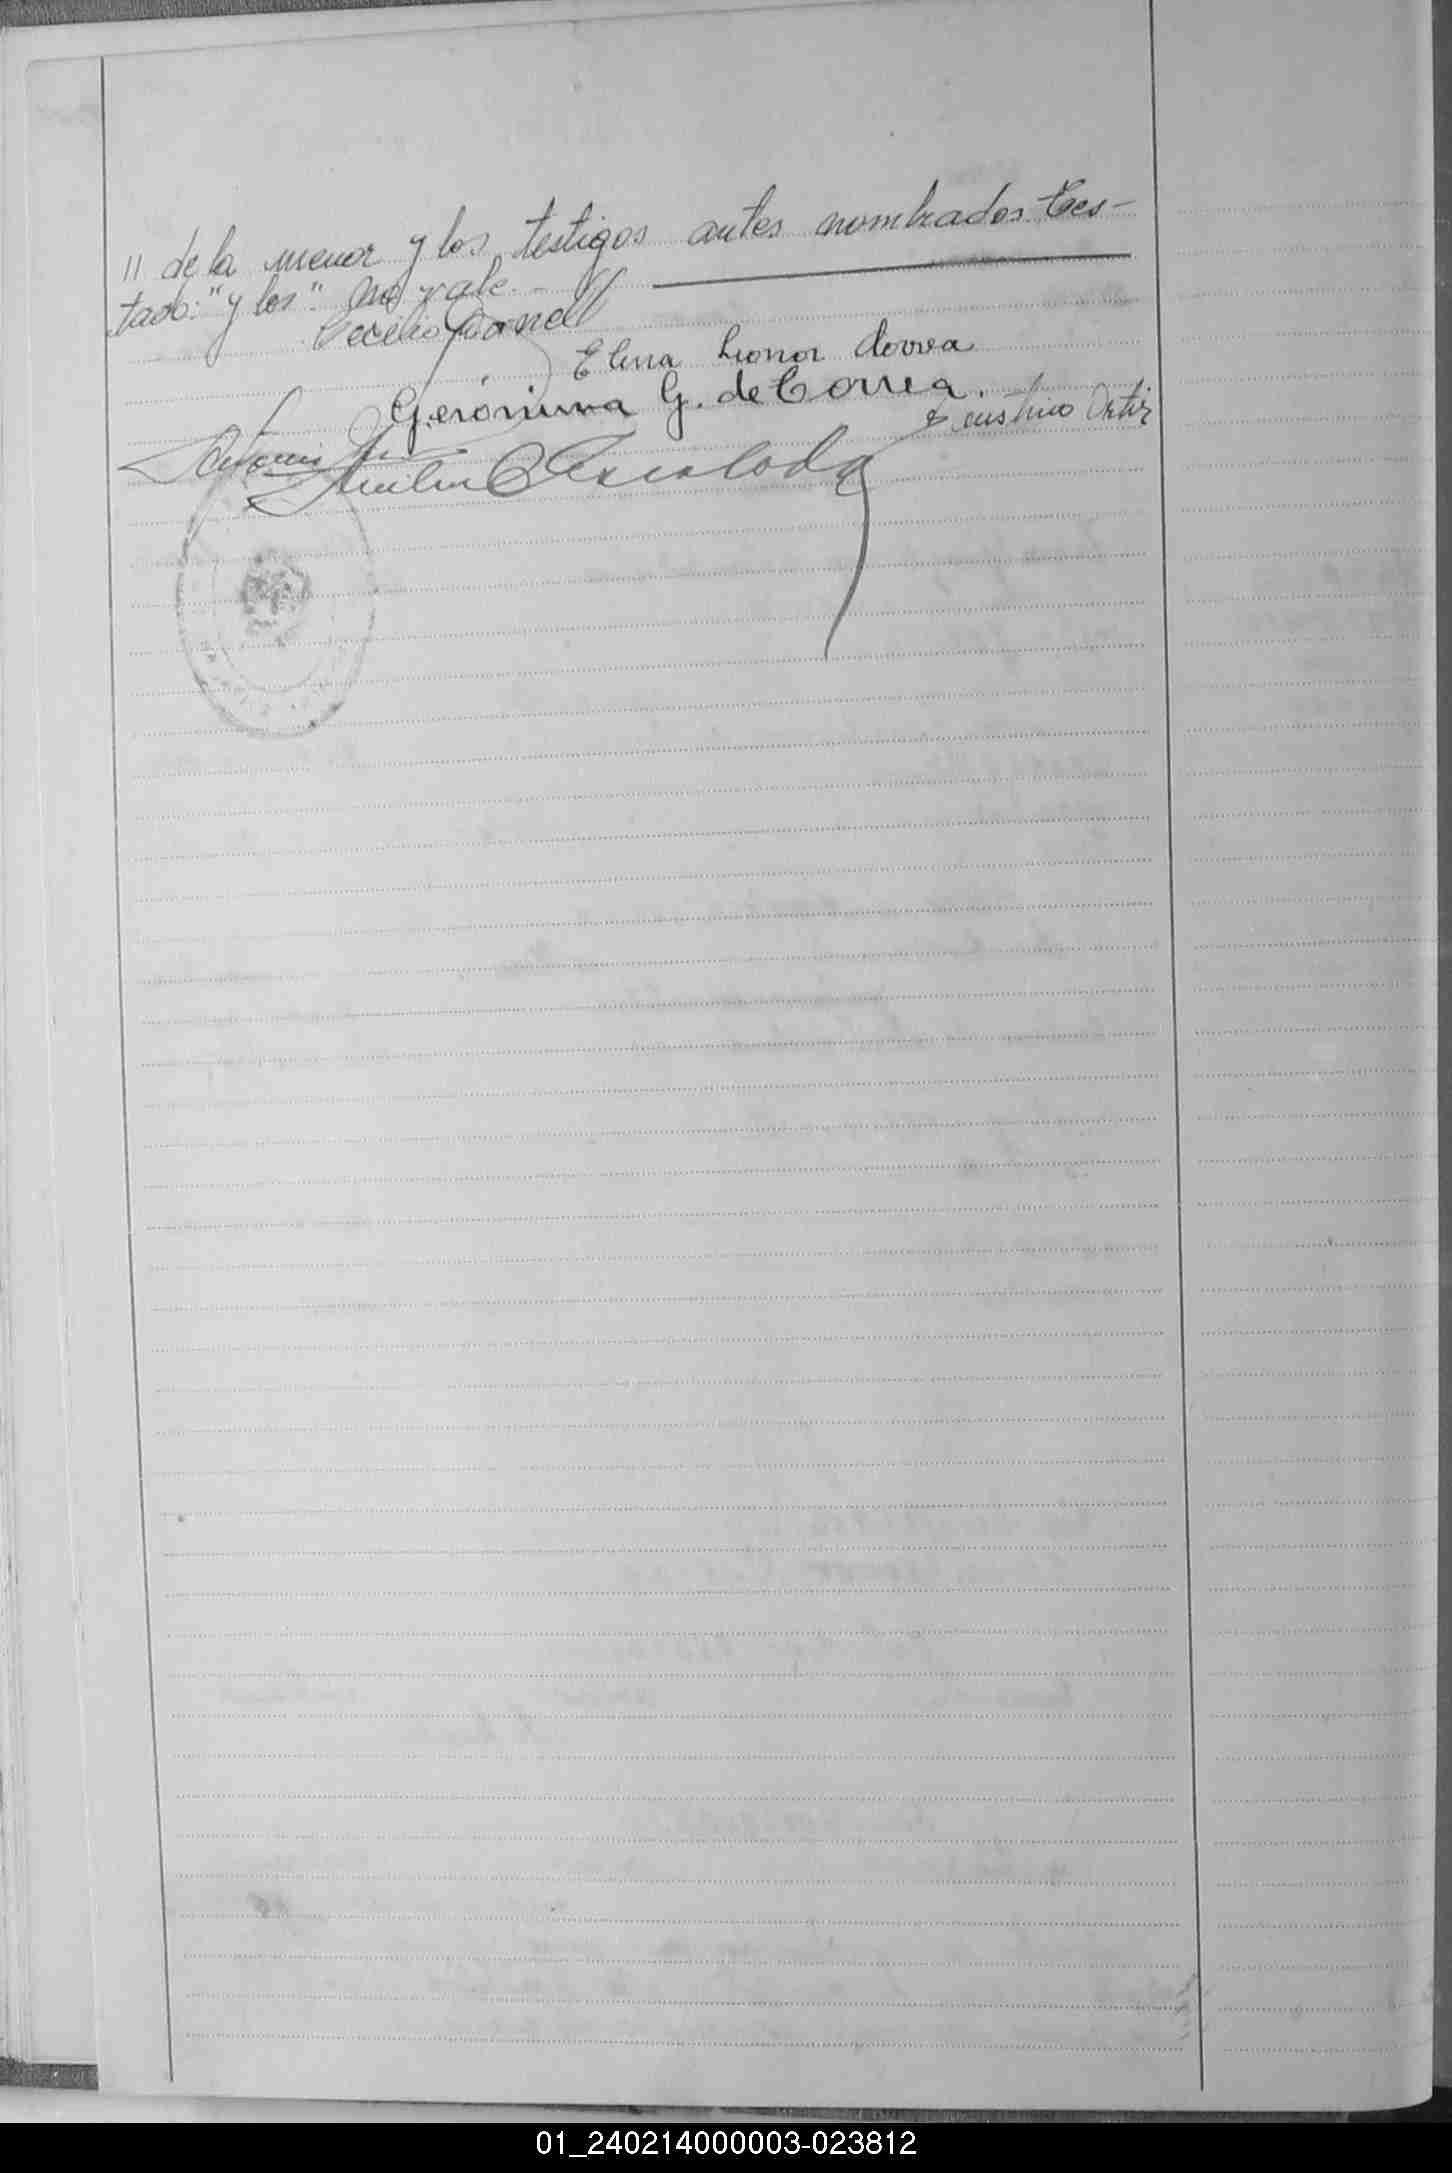 " de la menor y los testigos antes nombrados. Tes-
tado: "y los". No vale.-
Cecilio
Elena Leonor Correa
Gerónima G. de Correa.
Ortiz
Antonio
Escalada
01_240214000003-023812